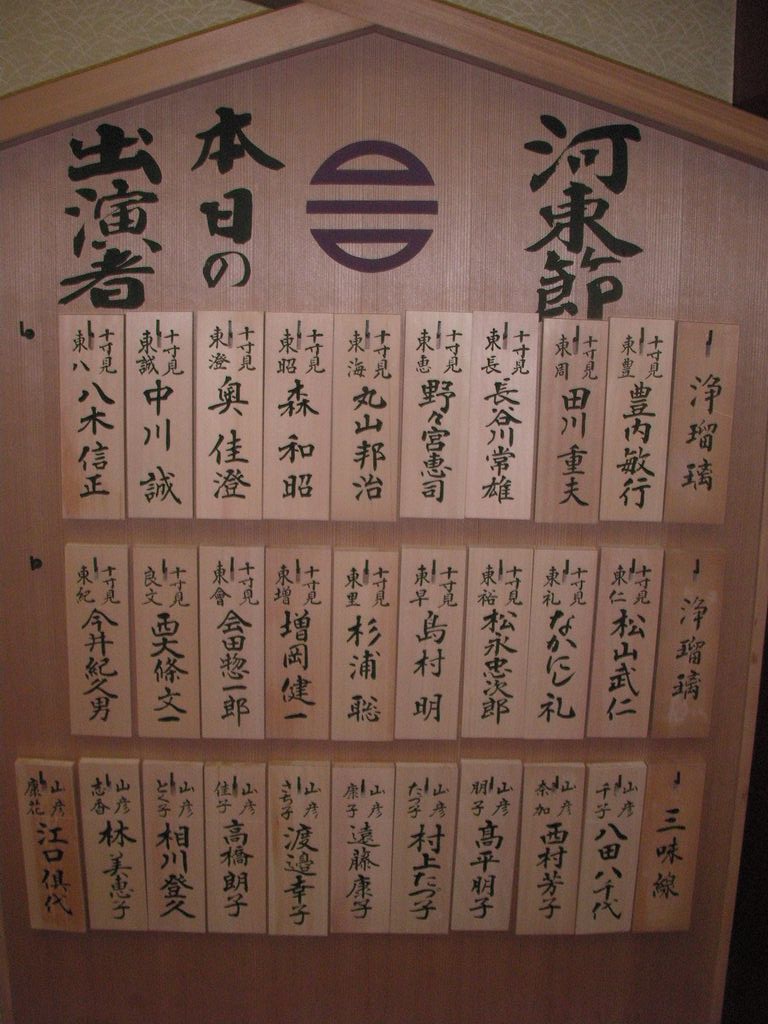 河東節
本日の
出演者
浄瑠璃
十寸見東豊 豊内敏行
十寸見東周 田川重夫
十寸見東長 長谷川常雄
十寸見東恵 野々宮惠司
十寸見東海 丸山邦治
十寸見東昭 森和昭
十寸見東澄 奥佳澄
十寸見東誠 中川誠
十寸見東八 八木信正
浄瑠璃
十寸見東仁 松山武仁
十寸見東礼 なかにし礼
十寸見東裕 松永忠次郎
十寸見東早 島村明
十寸見東里 杉浦聡
十寸見東増 増岡健一
十寸見東會 会田惣一郎
十寸見良文 西大條文一
十寸見東紀 今井紀久男
三味線
山彦千子 八田八千代
山彦奈加 西村芳子
山彦朋子 髙平朋子
山彦たつ子 村上たづ子
山彦康子 遠藤康子
山彦さち子 渡邉幸子
山彦佳子 高橋朗子
山彦とく子 相川登久
山彦志香 林美恵子
山彦康花 江口倶代